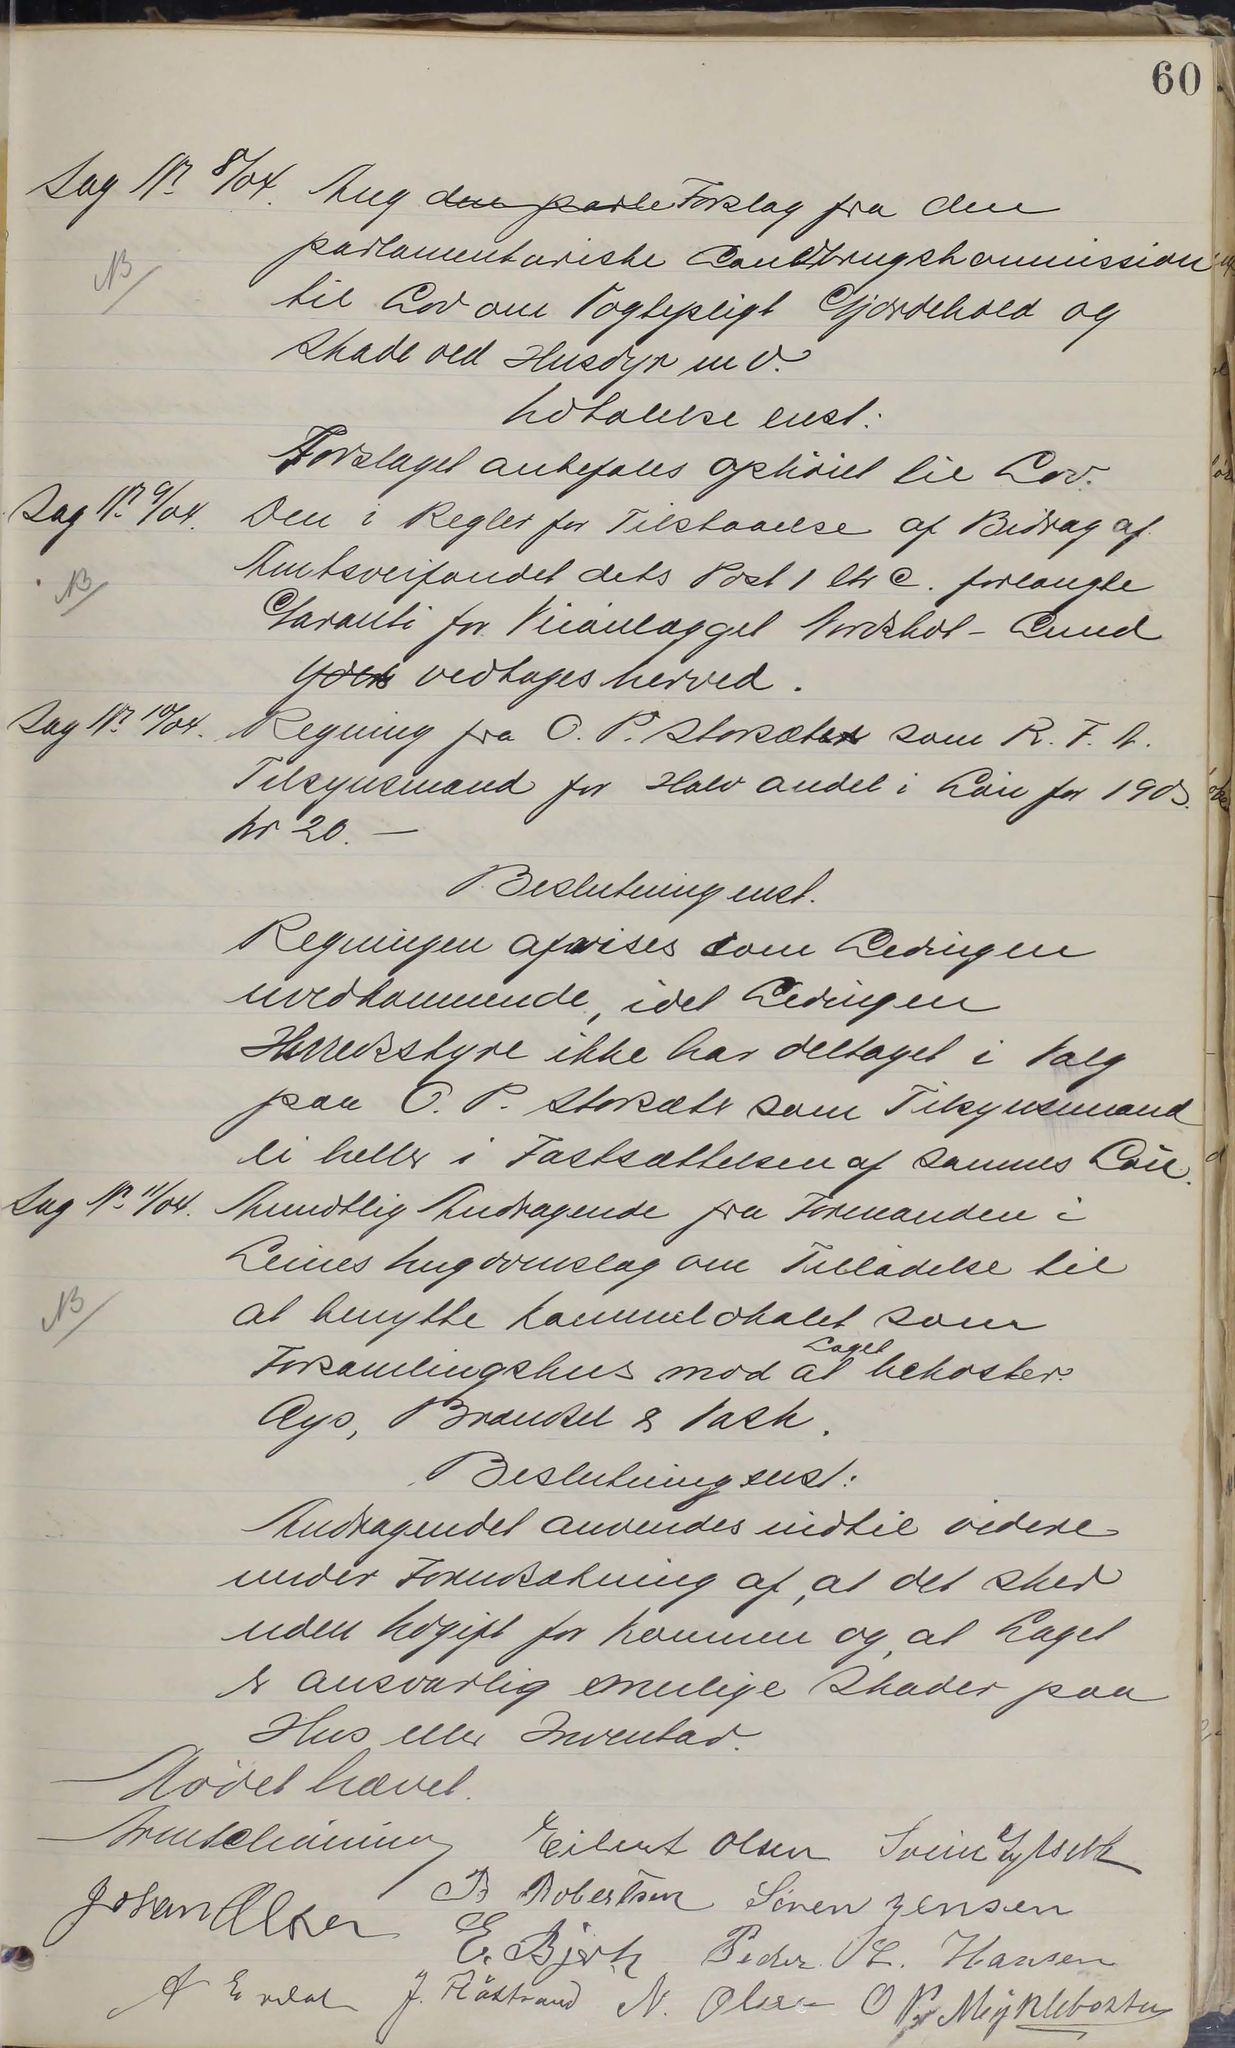 60
Sag No 8/04. Ang den parle Forslag fra den
NB
parlamentariske Landbrugskommission
til Lov om Vogtepligt Gjærdehold og
Skade ved Husdyr m v.
Udtalelse enst:
Forslaget anbefales ophöiet til Lov.
Sag No 9/04. Den i Regler for Tilstaaelse af Bidrag af
NB
Amtsveifondet dets Post 1 ltr c. forlangte
Garanti for Veianlægget Nordskot - Lund
ydes vedtages herved.
Sag No 10/04. Regning fra O. P. Storsæter som R. F. A.
Tilsynsmand for Halv andel i Lön for 1903.
kr 20. —
Beslutning enst.
Regningen afvises som Ledingen
uvedkommende, idet Ledingen
Herredsstyre ikke har deltaget i Valg
paa O. P. Storsæter som Tilsynsmand
ei heller i Fastsættelsen af sammes Lön.
Sag No 11/04. Mundtlig Andragende fra Formanden i
Leines Ungdomslag om Tilladelse til
NB
at benytte Kommunelokalet som
Forsamlingshus mod at Laget bekoster
Lys, Brændsel & Vask.
Beslutning enst:
Andragendet anvendes indtil videre
under Forudsætning af, at det sker
uden Udgift for Kommunen og, at Laget
er ansvarlig mulige Skader paa
Hus eller Inventar.
Mödet hævet.
Eilert Olsen Svein
Johan Olsen B Robertsen Sören Jensen
E. Bjerk Peder L. Hansen
A J. Flöstrand N. Olsen O P. Myklebostad